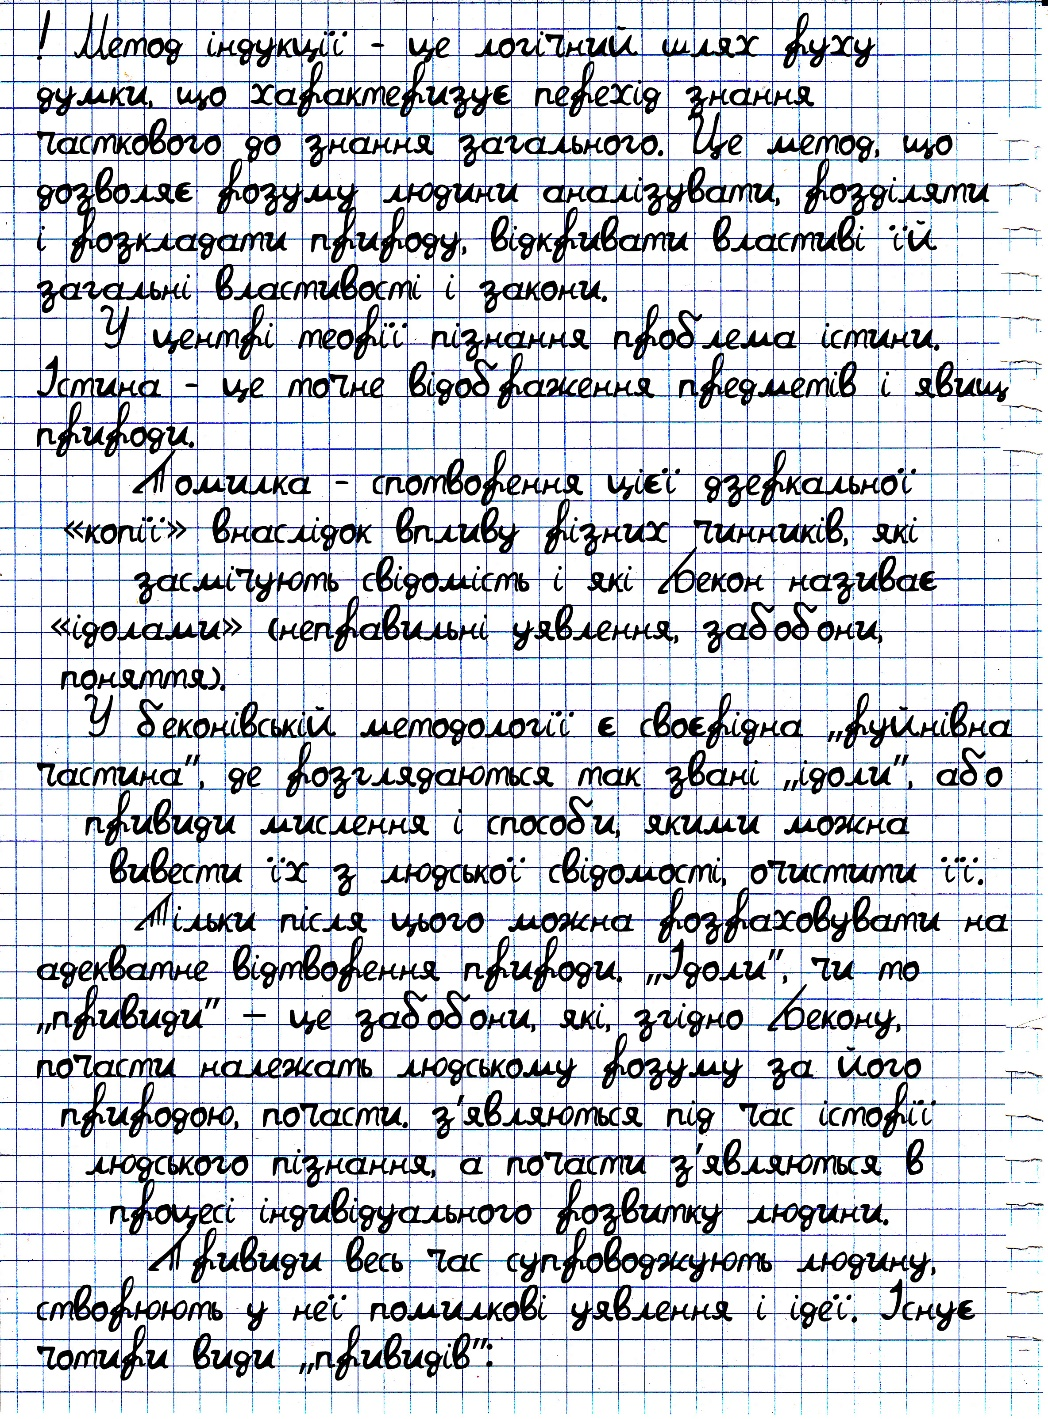 ! Метод індукції - це логічний шлях руху
думки, що характеризує перехід знання
часткового до знання загального. Це метод, що
дозволяє розуму людини аналізувати, розділяти
і розкладати природу, відкривати властиві їй
загальні властивості і закони.
У центрі теорії пізнання проблема істини.
Істина - це точне відображення предметів і явищ
природи.
Помилка - спотворення цієї дзеркальної
«копії» внаслідок впливу різних чинників, які
засмічують свідомість і які Бекон називає
«ідолами» (неправильні уявлення, забобони,
поняття).
У беконівській методології є своєрідна „руйнівна
частина", де розглядаються так звані „ідоли", або
привиди мислення і способи, якими можна
вивести їх з людської свідомості, очистити її.
Тільки після цього можна розраховувати на
адекватне відтворення природи. „Ідоли", чи то
„привиди" — це забобони, які, згідно Бекону,
почасти належать людському розуму за його
природою, почасти. з'являються під час історії
людського пізнання, а почасти з'являються в
процесі індивідуального розвитку людини.
Привиди весь час супроводжують людину,
створюють у неї помилкові уявлення і ідеї. Існує
чотири види „привидів":